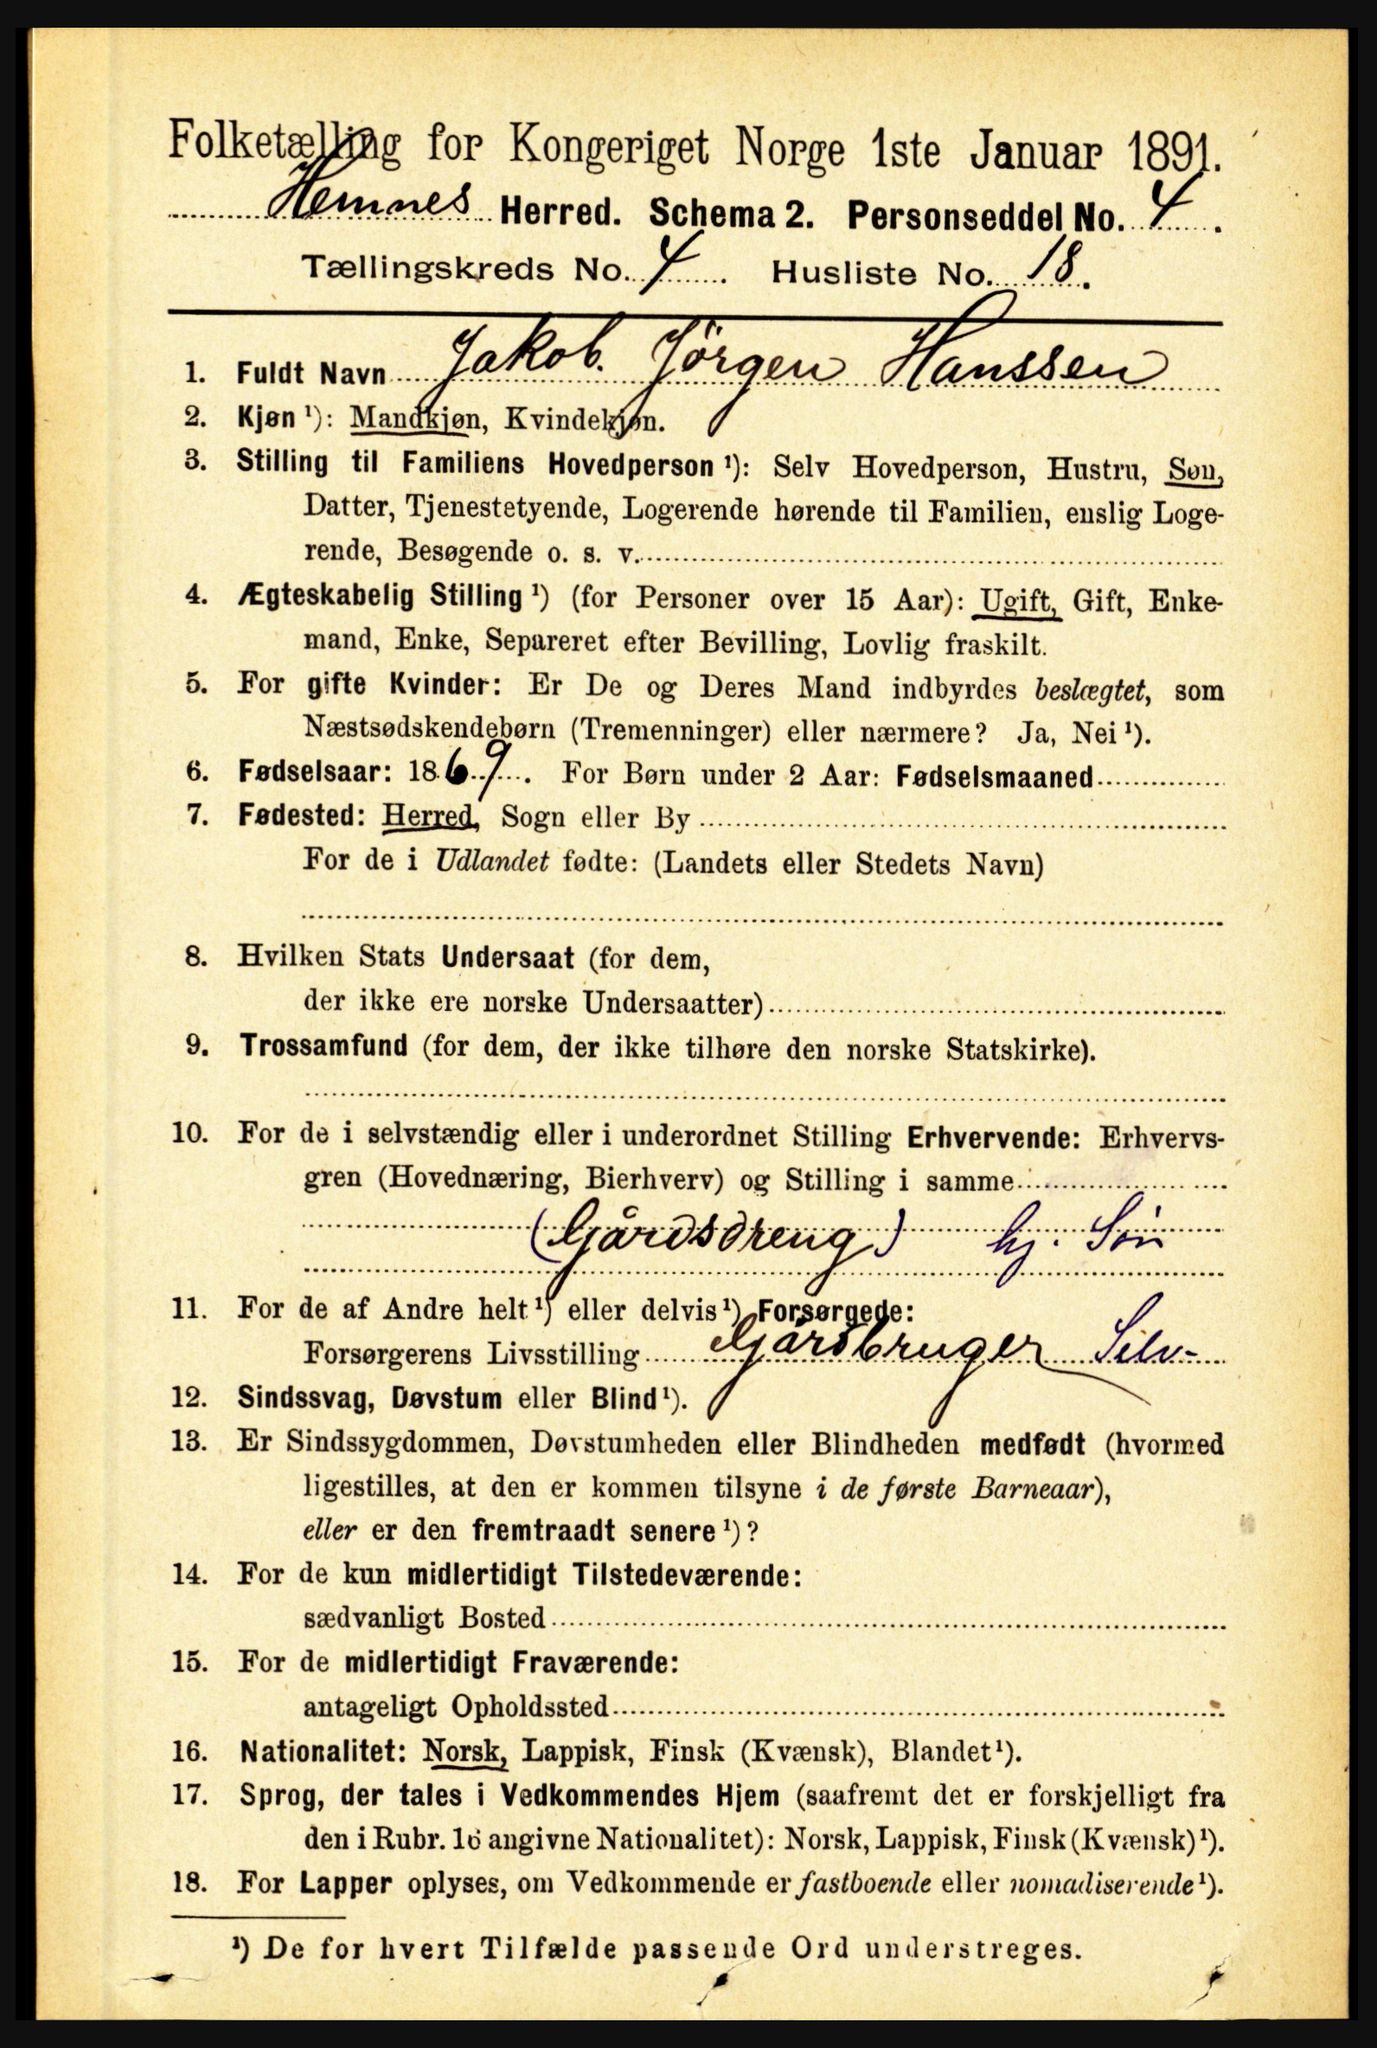 Folketælling for Kongeriget Norge 1ste Januar 1891.
Hemnes Herred. Schema 2. Personseddel No. 4.
Tællingskreds No. 4. Husliste No. 18.
1. Fuldt Navn Jakob. Jörgen Hanssen
2. Kjøn ¹): Mandkjøn, Kvindekjøn.
3. Stilling til Familiens Hovedperson ¹): Selv Hovedperson, Hustru, Søn,
Datter, Tjenestetyende, Logerende hørende til Familien, enslig Loge-
rende, Besøgende o. s. v.
4. Ægteskabelig Stilling ¹) (for Personer over 15 Aar): Ugift, Gift, Enke-
mand, Enke, Separeret efter Bevilling, Lovlig fraskilt.
5. For gifte Kvinder: Er De og Deres Mand indbyrdes beslægtet, som
Næstsødskendebørn (Tremenninger) eller nærmere? Ja, Nei ¹).
6. Fødselsaar: 1869. For Børn under 2 Aar: Fødselsmaaned
7. Fødested: Herred, Sogn eller By
For de i Udlandet fødte: (Landets eller Stedets Navn)
8. Hvilken Stats Undersaat (for dem,
der ikke ere norske Undersaatter)
9. Trossamfund (for dem, der ikke tilhøre den norske Statskirke).
10. For de i selvstændig eller i underordnet Stilling Erhvervende: Erhvervs-
gren (Hovednæring, Bierhverv) og Stilling i samme
(Gårdsdreng) hj. Sön
11. For de af Andre helt ¹) eller delvis ¹) Forsørgede:
Forsørgerens Livsstilling Gårdbruger Selv-
12. Sindssvag, Døvstum eller Blind ¹).
13. Er Sindssygdommen, Døvstumheden eller Blindheden medfødt (hvormed
ligestilles, at den er kommen tilsyne i de første Barneaar),
eller er den fremtraadt senere ¹)?
14. For de kun midlertidigt Tilstedeværende:
sædvanligt Bosted
15. For de midlertidigt Fraværende:
antageligt Opholdssted
16. Nationalitet: Norsk, Lappisk, Finsk (Kvænsk), Blandet ¹).
17. Sprog, der tales i Vedkommendes Hjem (saafremt det er forskjelligt fra
den i Rubr. 16 angivne Nationalitet): Norsk, Lappisk, Finsk (Kvænsk) ¹).
18. For Lapper oplyses, om Vedkommende er fastboende eller nomadiserende ¹).
¹) De for hvert Tilfælde passende Ord understreges.